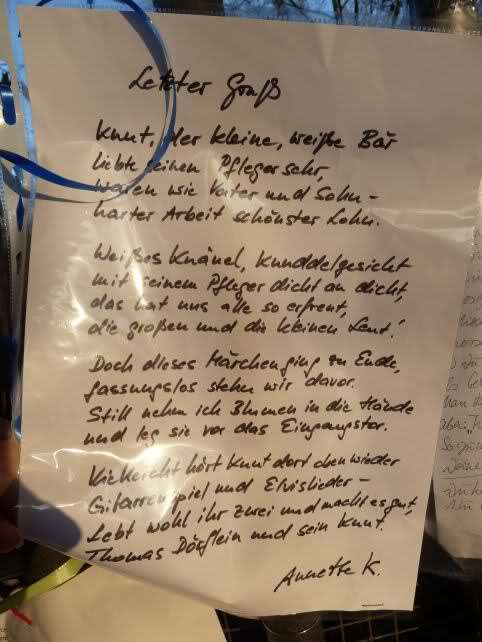 Letzter Gruß
Knut, der kleine, weiße Bär
liebte seinen Pfleger sehr,
waren wie Vater und Sohn –
harter Arbeit schönster Lohn.
Weißes Knäuel, Kunddelgesicht
mit seinem Pfleger dicht an dicht,
das hat uns alle so erfreut,
die großen und die kleinen Leut!
Doch dieses Märchen ging zu Ende,
fassungslos stehn wir davor.
Still nehm ich Blumen in die Hände
und leg sie vor das Eingangstor.
Vielleicht hört Knut dort oben wieder
Gitarrenspiel und Elvislieder –
Lebt wohl ihr zwei und macht es gut,
Thomas Dörflein und sein Knut.
Annette K.